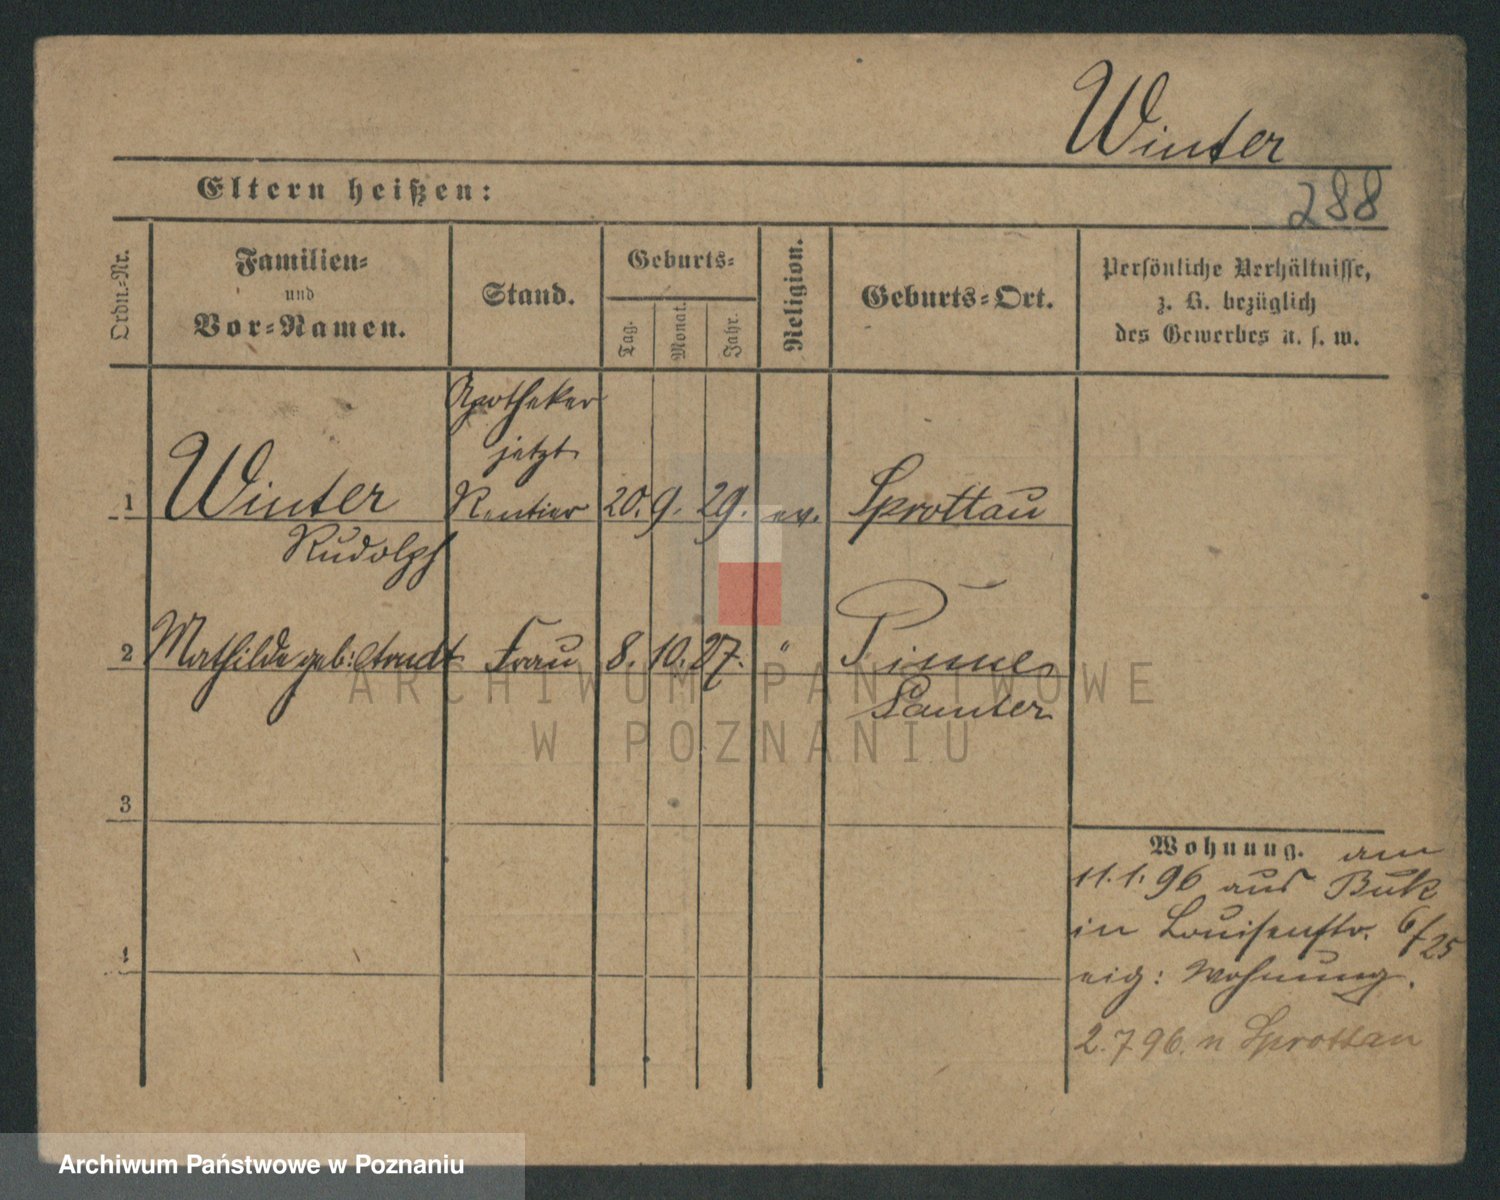 Winter
288
Eltern heißen:
Ordn.-Nr.
Familien-
und
Vor-Namen.
Stand.
Geburts-
Tag.
Monat.
Jahr.
Religion.
Geburts-Ort.
Persönliche Verhältnisse,
z. B. bezüglich
des Gewerbes u. s. w.
Apotheker
jetzt
1 Winter Rentier 20. 9. 29. ev. Sprottau
Rudolph
2 Mathilde geb: Frau 8. 10. 27. " Pinne
Samter
3
4
Wohnung. am
11.1.96 aus Buk
in Louisenstr. 6/25
eig: Wohnung.
2.7.96. n Sprottau
ARCHIWUM PAŃSTWOWE
W POZNANIU
Archiwum Państwowe w Poznaniu